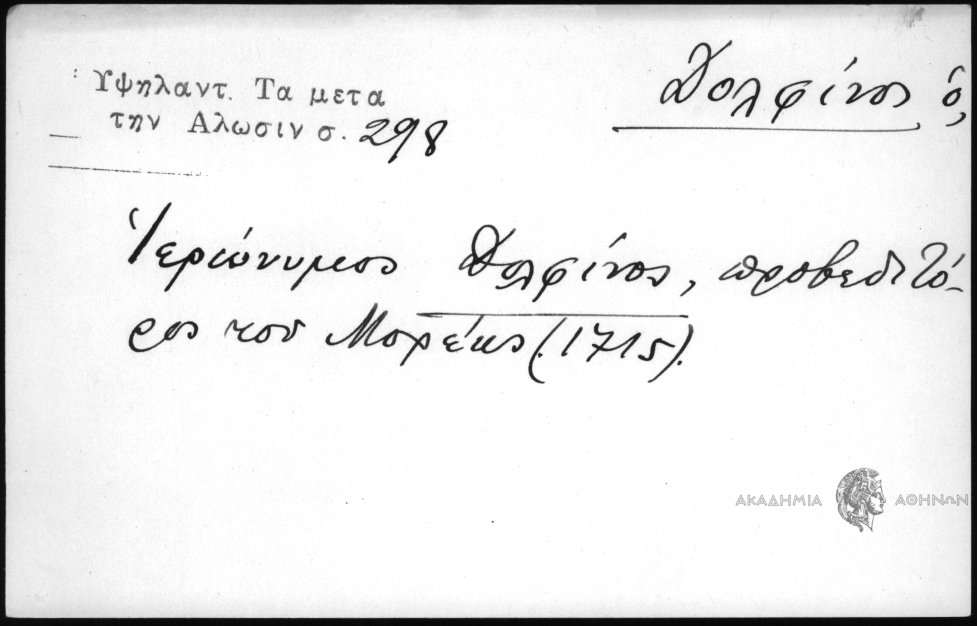 Υψηλαντ. Τα μετα
την Αλωσιν σ. 298
Δολφίνος ὁ,
Ἱερώνυμος Δολφίνος, προβεδιτό-
ρος του Μορέως (1715).
ΑΚΑΔΗΜΙΑ ΑΘΗΝΩΝ